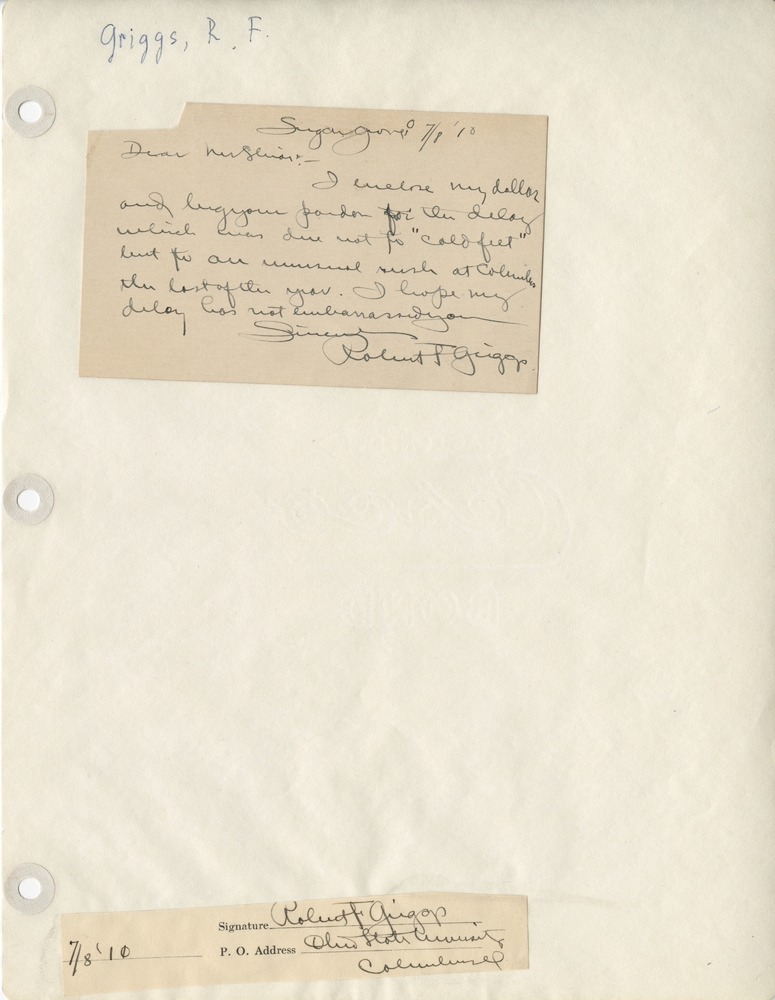 Griggs, R. F.
Sugar Grove O 7/8 '10
Dear Mr :—
I enclose my dollar
and beg your pardon for the delay
which was due not to "cold feet"
but to an unusual rush at Columbus
the last of the year. I hope my
delay has not embarrassed you
Sincerely
Robert F Griggs.
Signature Robert F Griggs
7/8 '10 P. O. Address Ohio State University
Columbus O